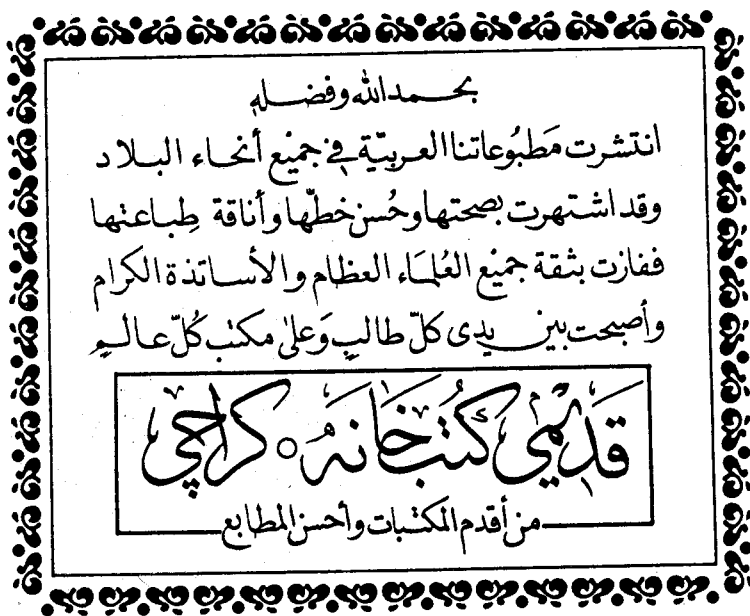 بحمد الله وفضله
انتشرت مَطبُوعاتنا العربيّة في جميْع أنحاء البلاد
وقد اشتهرت بصحتها وحُسن خطّها وأناقة طِباعتها
ففازت بثقة جميْع العُلمَاء العظام والأساتذة الكرام
وأصبحت بين يدى كلّ طالبٍ وَعلىٰ مكتب كُلّ عالمٍ
قَدیمی کُتب خَانَہ ○ کراچی
من أقدم المكتبات وأحسن المطابع